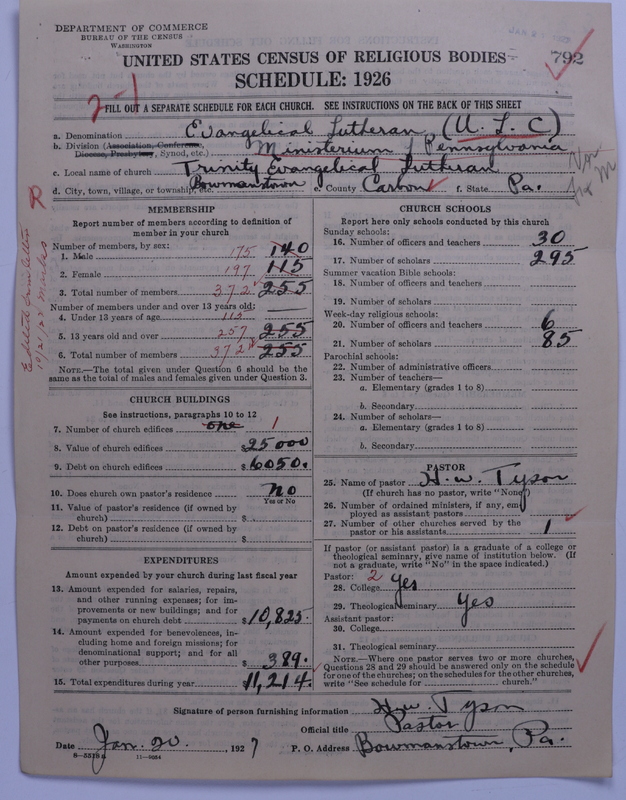 DEPARTMENT OF COMMERCE
BUREAU OF THE CENSUS
WASHINGTON
UNITED STATES CENSUS OF RELIGIOUS BODIES
792
SCHEDULE: 1926
2-1
FILL OUT A SEPARATE SCHEDULE FOR EACH CHURCH. SEE INSTRUCTIONS ON THE BACK OF THIS SHEET
a. Denomination Evangelical Lutheran (U. L. C)
b. Division (Association, Conference, Diocese, Presbytery, Synod, etc.) Ministerium of Pennsylvania
c. Local name of church Trinity Evangelical Lutheran
d. City, town, village, or township, etc. Bowmanstown e. County Carbon f. State Pa.
MEMBERSHIP
Report number of members according to definition of
member in your church
Number of members, by sex:
1. Male 175 140
2. Female 197 115
3. Total number of members 372 255
Number of members under and over 13 years old:
4. Under 13 years of age 115 —
5. 13 years old and over 257 255
6. Total number of members 372 255
NOTE.—The total given under Question 6 should be
same as the total of males and females given under Question 3.
CHURCH BUILDINGS
See instructions, paragraphs 10 to 12
7. Number of church edifices one 1
8. Value of church edifices $25000
9. Debt on church edifices $6050.
10. Does church own pastor's residence No
Yes or No
11. Value of pastor's residence (if owned by
church) $
12. Debt on pastor's residence (if owned by
church) $
EXPENDITURES
Amount expended by your church during last fiscal year
13. Amount expended for salaries, repairs,
and other running expenses; for im-
provements or new buildings; and for
payments on church debt $10,825.
14. Amount expended for benevolences, in-
cluding home and foreign missions; for
denominational support; and for all
other purposes $389.
15. Total expenditures during year 11,214.
CHURCH SCHOOLS
Report here only schools conducted by this church
Sunday schools:
16. Number of officers and teachers 30
17. Number of scholars 295
Summer vacation Bible schools:
18. Number of officers and teachers
19. Number of scholars
Week-day religious schools:
20. Number of officers and teachers 6
21. Number of scholars 85
Parochial schools:
22. Number of administrative officers
23. Number of teachers—
a. Elementary (grades 1 to 8)
b. Secondary
24. Number of scholars—
a. Elementary (grades 1 to 8)
b. Secondary
PASTOR
25. Name of pastor H. W. Tyson
(If church has no pastor, write "None")
26. Number of ordained ministers, if any, em-
ployed as assistant pastors
27. Number of other churches served by the
pastor or his assistants 1
If pastor (or assistant pastor) is a graduate of a college or
theological seminary, give name of institution below. (If
not a graduate, write "No" in the space indicated.)
Pastor: 2
28. College Yes
29. Theological seminary Yes
Assistant pastor:
30. College
31. Theological seminary
NOTE.—Where one pastor serves two or more churches,
Questions 28 and 29 should be answered only on the schedule
for one of the churches; on the schedules for the other churches,
write "See schedule for church."
Signature of person furnishing information H. W. Tyson
Official title Pastor
Date Jan. 20, 1927 P. O. Address Bowmanstown, Pa.
8—5318a 11—9034